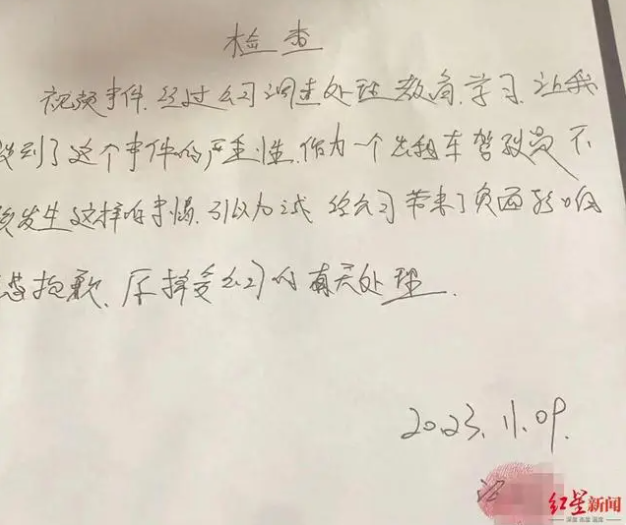 检查
视频事件.经过公司调查处理教育.学习.让我
识到了这个事件的严重性.作为一个出租车驾驶员不
该发生这样的事情.引以为戒 给公司带来了负面影响
抱歉、愿接受公司的有关处理.
2023.11.09.
红星新闻
深度 态度 温度